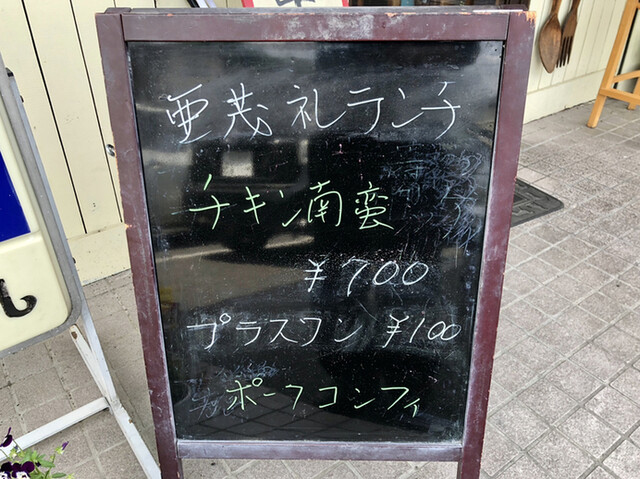 亜茂礼ランチ
チキン南蛮
¥700
プラスワン ¥100
ポーフコンフィ